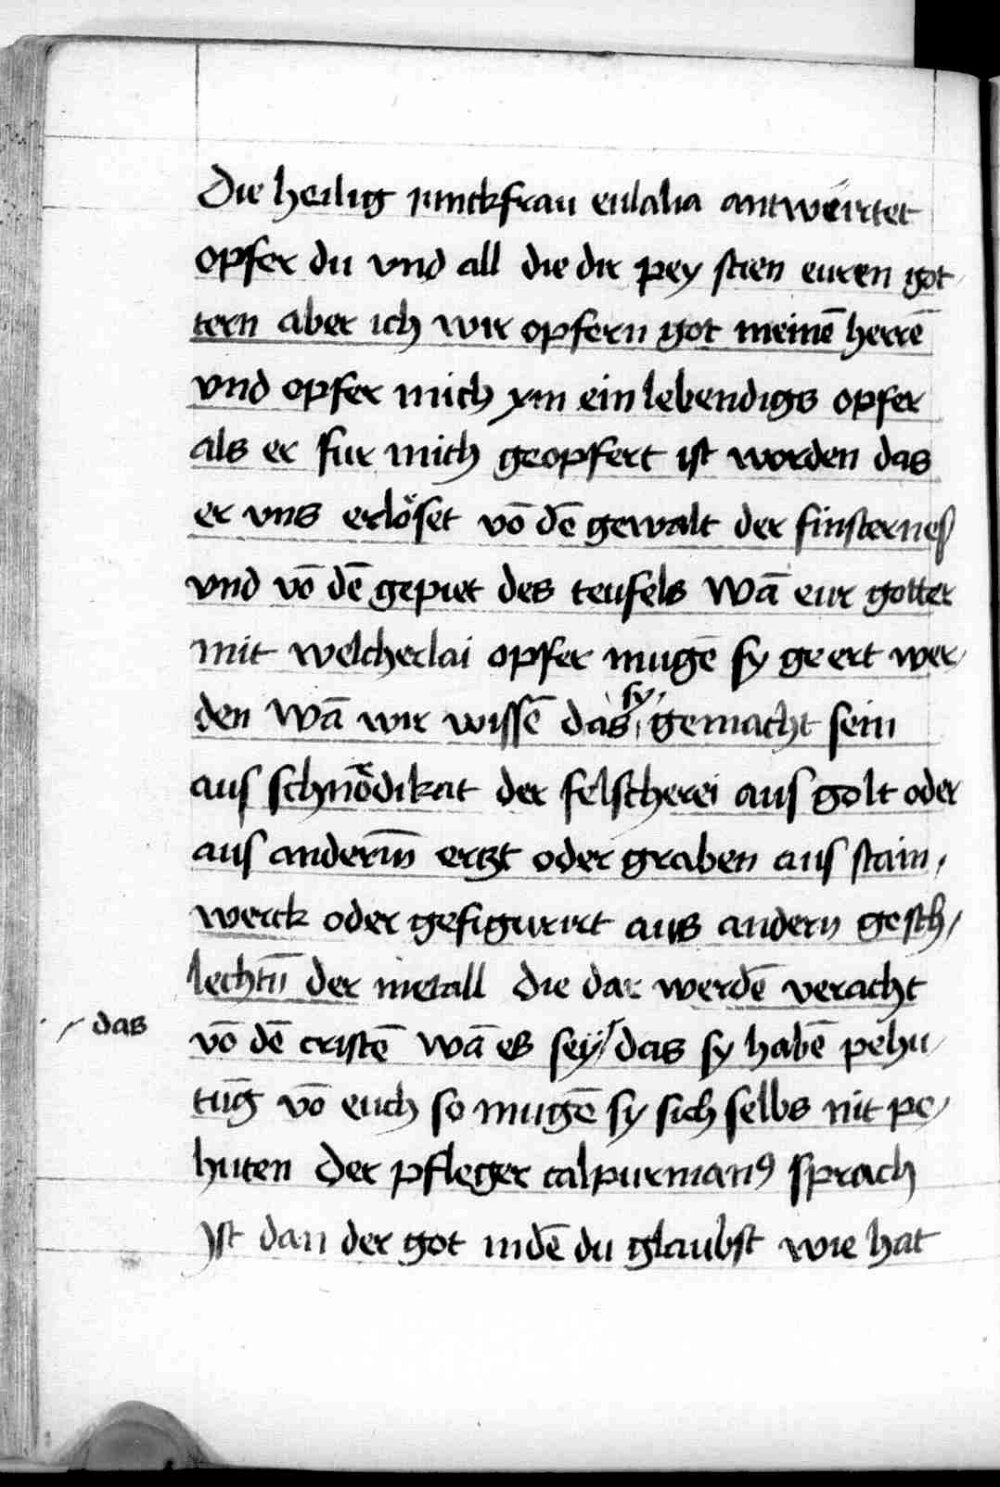 Die heilig junckfrau eulalia antwurtet
opfer du vnd all die dir pey sten euren got
tern aber ich wir opfern got meinē herrē
vnd opfer mich ym ein lebendigs opfer
als er fur mich geopfert ist worden das
er vns erlöset vō dē gewalt der finsternes
vnd vō dē gepiet des teufels Wā eur gotter
mit welcherlai opfer mugē sy geert wer
den Wā wir wissē das sy gemacht sein
aus schnödikat der felscherei aus golt oder
aus anderm̄ ertzt oder graben aus stain
werck oder gefigurirt aus andern gesch
lechtn̄ der metall die dar werdē veracht
das
vō dē cristē Wā es sey das sy habē pehu
tūg vō euch so mugē sy sich selbs nit pe
huten Der pfleger calpurnianꝰ sprach
Ist dan der got indē du glaubst wie hat